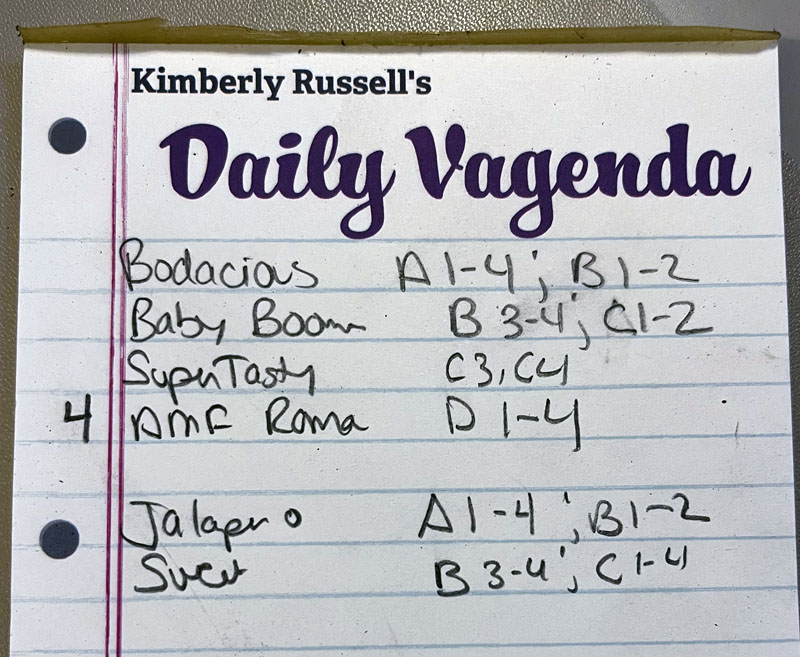 Kimberly Russell's
Daily Vagenda
Bodacious A 1-4; B 1-2
Baby Boom B 3-4; C 1-2
SuperTasty C3, C4
4 AMF Roma D 1-4
Jalapeno A 1-4; B 1-2
B 3-4; C 1-4